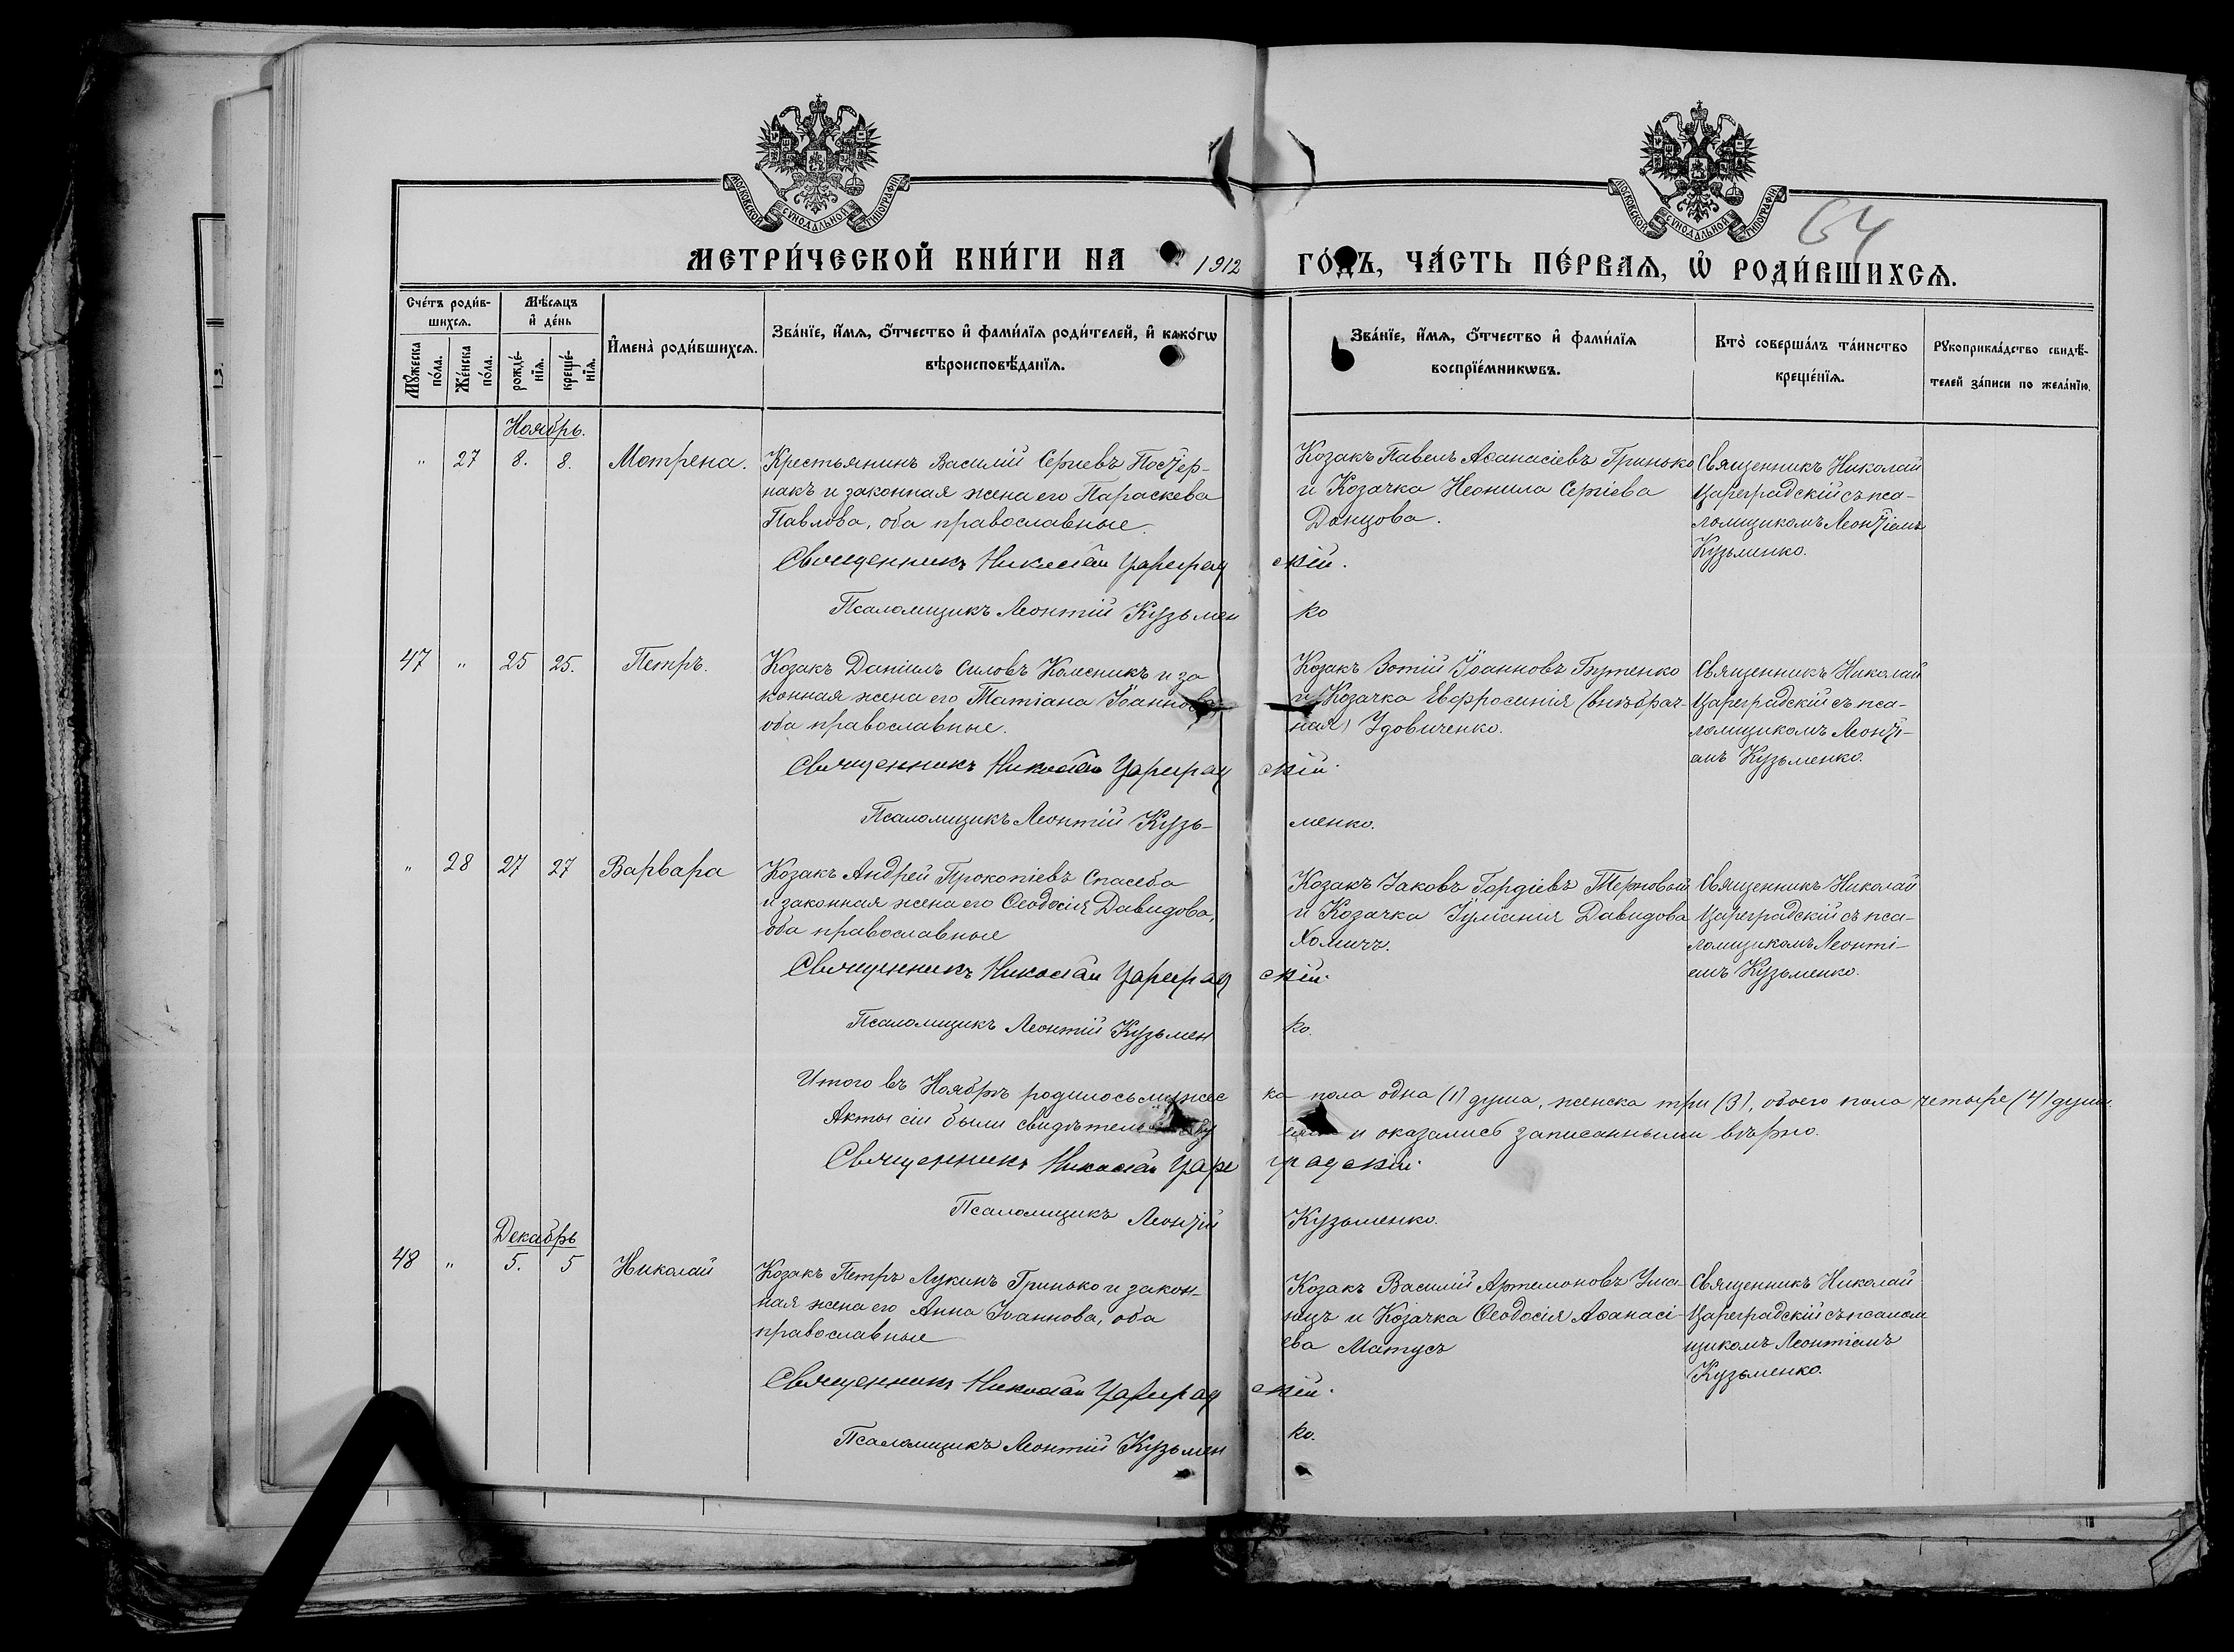 64
МОСКОВСКОЙ СѴНОДАЛЬНОЙ ТИПОГРАФІИ
МОСКОВСКОЙ СѴНОДАЛЬНОЙ ТИПОГРАФІИ
МЕТРИ́ЧЕСКОЙ КНИ́ГИ НА 1912 ГО́ДЪ, ЧА́СТЬ ПЕ́РВАѦ, Ѡ РОДИ́ВШИХСѦ.
Сче́тъ роди́в-
шихсѧ.
Мꙋжеска
по́ла.
Же́нска
по́ла.
Мѣ́сѧцъ
и҆ де́нь
рожде́-
нїѧ.
креще́-
нїѧ.
И҆мена̀ роди́вшихсѧ.
Зва́нїе, и҆́мѧ, ѻ҆́тчество и҆ фами́лїѧ роди́телей, и҆ како́гѡ
вѣроисповѣ́данїѧ.
Зва́нїе, и҆́мѧ, ѻ҆́тчество и҆ фами́лїѧ
воспрїе́мникѡвъ.
Кто̀ соверша́лъ та́инство
креще́нїѧ.
Рꙋкоприкла́дство свидѣ́-
телей за́писи по жела́нїю.
Ноябрь.
" 27 8. 8. Мотрена.
Крестьянинъ Василій Сергіевъ
накъ и законная жена его Параскева
Павлова, оба православные.
Козакъ Павелъ Аѳанасіевъ Гринько
и Козачка Неонила Сергіева
Донцова.
Священникъ Николай
Цареградскій съ пса-
ломщикомъ Леонтіемъ
Кузьменко.
Священникъ Николай Цареградскій.
Псаломщикъ Леонтій Кузьменко
47 " 25 25. Петръ.
Козакъ Даніилъ Силовъ Колесникъ и за
конная жена его Татіана Іоаннова,
оба православные.
Козакъ Зотій Іоанновъ Бутенко
и Козачка Евфросинія (внѣбрач-
ная) Удовиченко.
Священникъ Николай
Цареградскій съ пса-
ломщикомъ Леонті-
емъ Кузьменко.
Священникъ Николай Цареградскій.
Псаломщикъ Леонтій Кузь-менко.
" 28 27 27 Варвара
Козакъ Андрей Прокопіевъ Спасеба
и законная жена его Ѳеодосія Давидова,
оба православные
Козакъ Іаковъ Гордіевъ Терновый
и Козачка Іуліанія Давидова
Хомичъ.
Священникъ Николай
Цареградскій съ пса-
ломщикомъ Леонті-
емъ Кузьменко.
Священникъ Николай Цареградскій.
Псаломщикъ Леонтій Кузьменко.
Итого въ Ноябрѣ родилось мужеска пола одна (1) душа, женска три (3), обоего пола четыре (4) души.
Акты сіи были и оказались записанными вѣрно.
Священникъ Николай Цареградскій.
Псаломщикъ Леонтій Кузьменко.
Декабрь
48 " 5. 5 Николай
Козакъ Петръ Лукинъ Гринько и закон-
ная жена его Анна Іоаннова, оба
православные
Козакъ Василій Артемоновъ Ума-
нецъ и Козачка Ѳеодосія Аѳанасі-
ева Матусъ
Священникъ Николай
Цареградскій съ псалом
щикомъ Леонтіемъ
Кузьменко.
Священникъ Николай Цареградскій.
Псаломщикъ Леонтій Кузьменко.